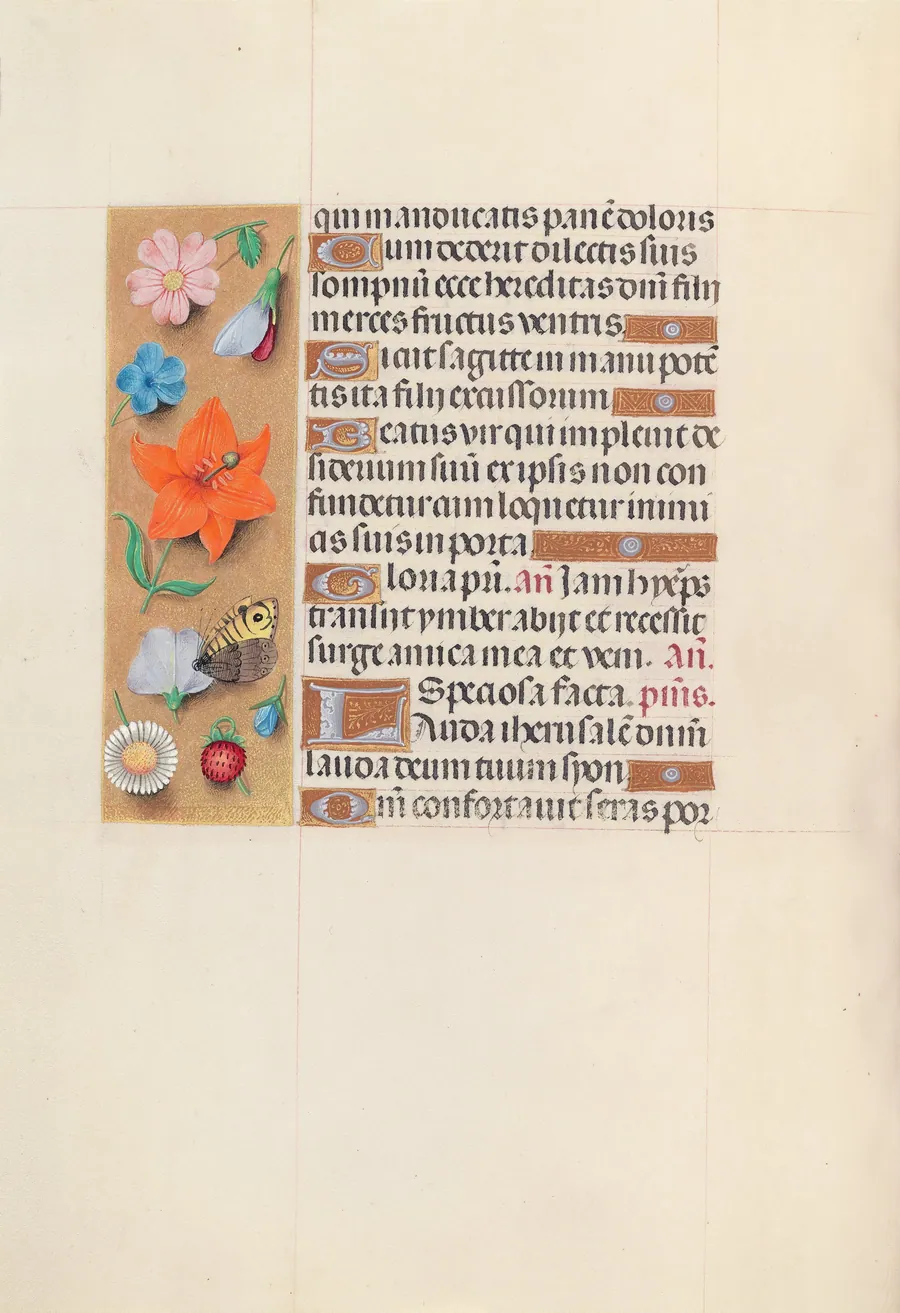 qui manducatis panē doloris
Cum dederit dilectis suis
sompnū ecce hereditas dnī filij
merces fructus ventris
Sicut sagitte in manu potē
tis ita filij excussorum
Beatus vir qui impleuit de
siderium suū ex ipsis non con
fundetur cum loquetur inimi
cis suis in porta
Gloria pr̄i. an̄ Jam hyēps
transijt ymber abijt et recessit
surge amica mea et veni. An̄.
Speciosa facta. pm̄s.
Lauda iherusalē dominū
lauda deum tuum syon
Qm̄ confortauit seras por